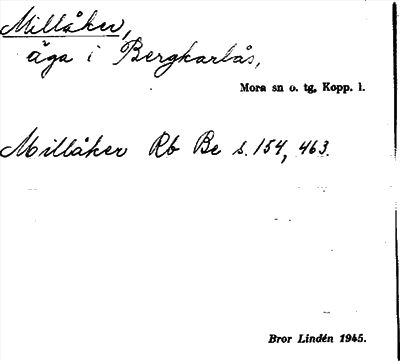 Millåker,
äga i Bergkarlås,
Mora sn o. tg, Kopp. l.
Millåker Rb Be s. 154, 463.
Bror Lindén 1945.